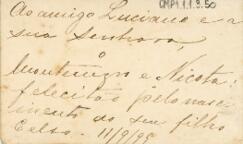 CMP1.1.9.50
Ao amigo Luciano e a
sua senhora,
o
Montenegro e Nicota
felicitão pelo nas-
cimento do seu filho
Celso. 11/9/95